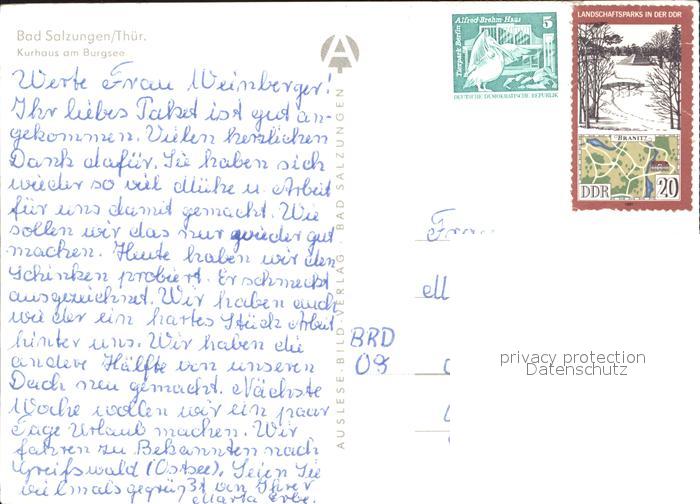 Bad Salzungen/Thür.
Kurhaus am Burgsee
Werte Frau Weinberger!
Ihr liebes Paket ist gut an-
gekommen. Vielen herzlichen
Dank dafür. Sie haben sich
wieder so viel Mühe u. Arbeit
für uns damit gemacht. Wie
sollen wir das nur wieder gut
machen. Heute haben wir den
Schinken probiert. Er schmeckt
ausgezeichnet. Wir haben auch
wieder ein hartes Stück Arbeit
hinter uns. Wir haben die
andere Hälfte von unseren
Dach neu gemacht. Nächste
Woche wollen wir ein paar
Tage Urlaub machen. Wir
fahren zu Bekannten nach
Greifswald (Ostsee). Seien Sie
vielmals gegrüßt von Ihrer
Maria Erbe.
AUSLESE-BILD-VERLAG · BAD SALZUNGEN
Tierpark Berlin
Alfred-Brehm-Haus
5
DEUTSCHE DEMOKRATISCHE REPUBLIK
LANDSCHAFTSPARKS IN DER DDR
BRANITZ
DDR
20
1981
Frau
BRD
privacy protection
Datenschutz